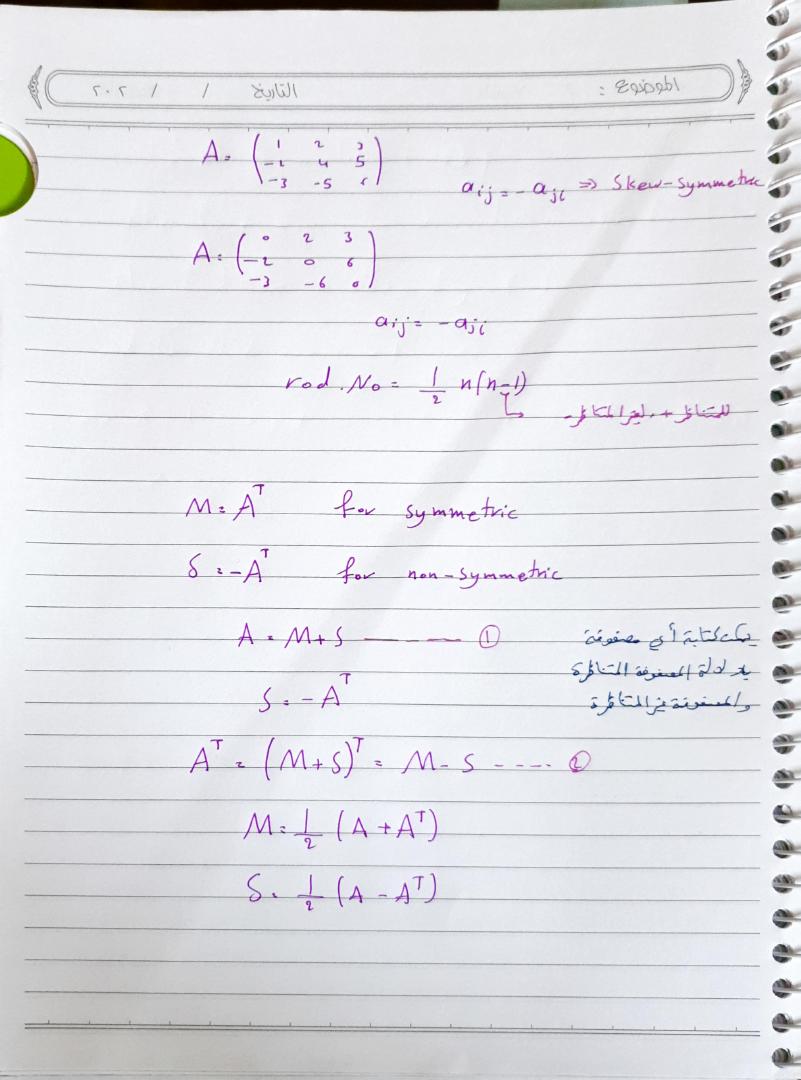 الموضوع : التاريخ / / ٢٠٢
A = ( 1 2 3
-2 4 5
-3 -5 6 )
aij = - aji ⇒ Skew-symmetric
A = ( 0 2 3
-2 0 6
-3 -6 0 )
aij = - aji
rod. No = 1/2 n(n-1)
للمتناظر + ، لغير المتناظر -
M = A^T for symmetric
S = -A^T for non-symmetric
A = M + S ------- ①
يمكن كتابة أي مصفوفة
بدلالة المصفوفة المتناظرة
والمصفوفة غير المتناظرة
S = - A^T
A^T = (M+S)^T = M - S ---- ②
M = 1/2 (A + A^T)
S = 1/2 (A - A^T)